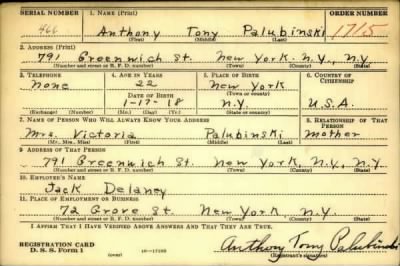 SERIAL NUMBER 1. NAME (Print) ORDER NUMBER
466 Anthony Tony Palubinski 1715
(First) (Middle) (Last)
2. ADDRESS (Print)
791 Greenwich St. New York. N.Y., N.Y
(Number and street or R. F. D. number) (Town) (County) (State)
3. TELEPHONE 4. AGE IN YEARS 5. PLACE OF BIRTH 6. COUNTRY OF CITIZENSHIP
none 22 New York
DATE OF BIRTH (Town or county)
1-17-18 N.Y. U.S.A.
(Exchange) (Number) (Mo.) (Day) (Yr.) (State or country)
7. NAME OF PERSON WHO WILL ALWAYS KNOW YOUR ADDRESS 8. RELATIONSHIP OF THAT PERSON
Mrs. Victoria Palubinski mother
(Mr., Mrs., Miss) (First) (Middle) (Last)
9 ADDRESS OF THAT PERSON
791 Greenwich St. New York, N.Y., N.Y.
(Number and street or R. F. D. number) (Town) (County) (State)
10. EMPLOYER'S NAME
Jack Delaney
11. PLACE OF EMPLOYMENT OR BUSINESS
72 Grove St. New York N.Y.
(Number and street or R. F. D. number) (Town) (County) (State)
I AFFIRM THAT I HAVE VERIFIED ABOVE ANSWERS AND THAT THEY ARE TRUE.
REGISTRATION CARD
D. S. S. Form 1 (over) 16-17105 Anthony Tony Palubinski
(Registrant's signature)